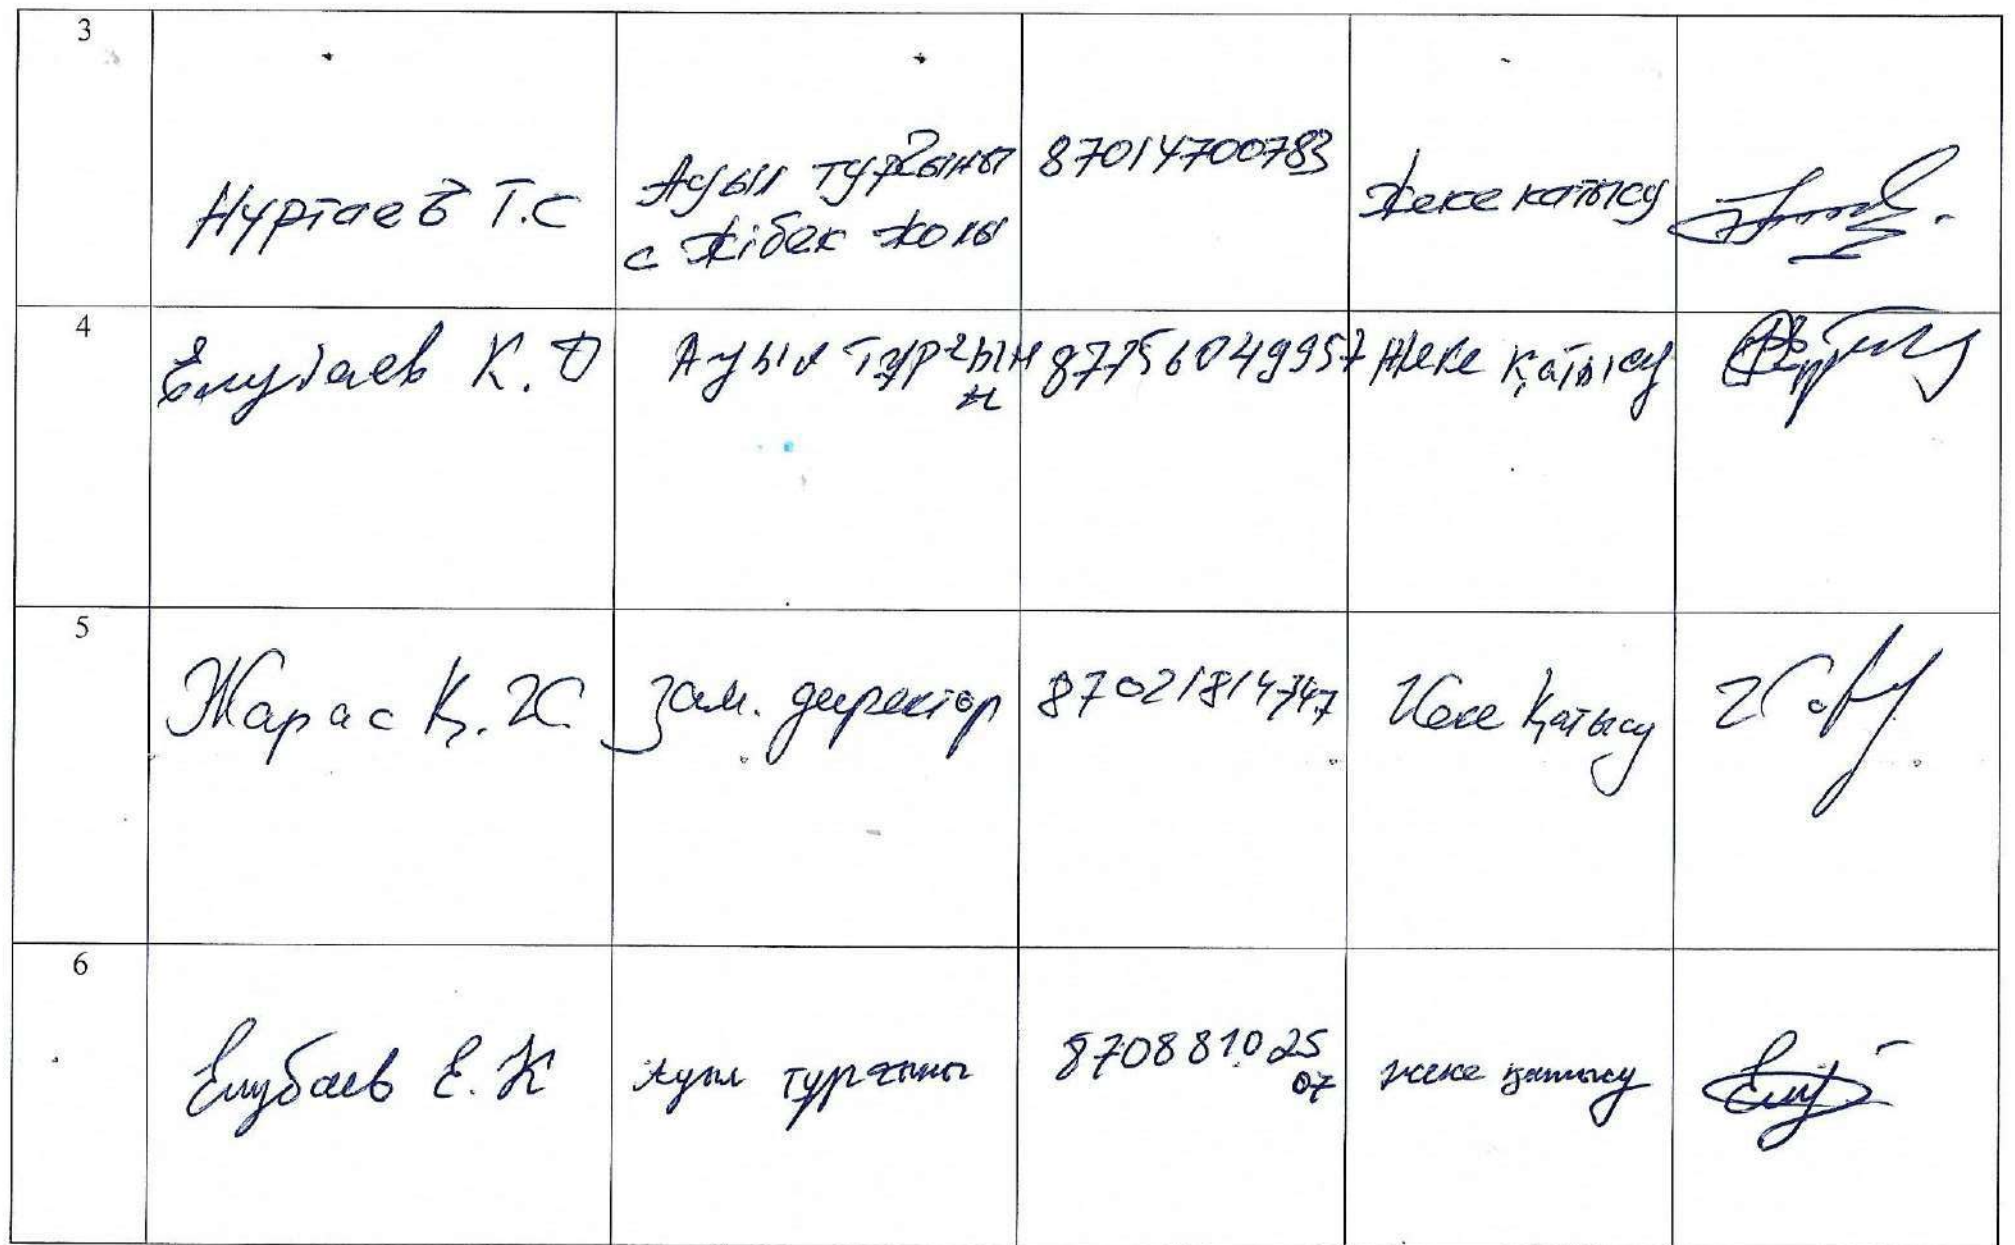 3
Нуртаев Т.С
Ауыл турғыны
с Жібек жолы
87014700783
Жеке катысу
4
К. О
Ауыл турғын
и
87756049957
Жеке қатысу
5
Жарас Қ. Ж
Зам. директор
87021814747
Жеке Қатысу
6
Елубаев Е. К
Ауыл турғыны
8708810 25
07
жеке қатысу